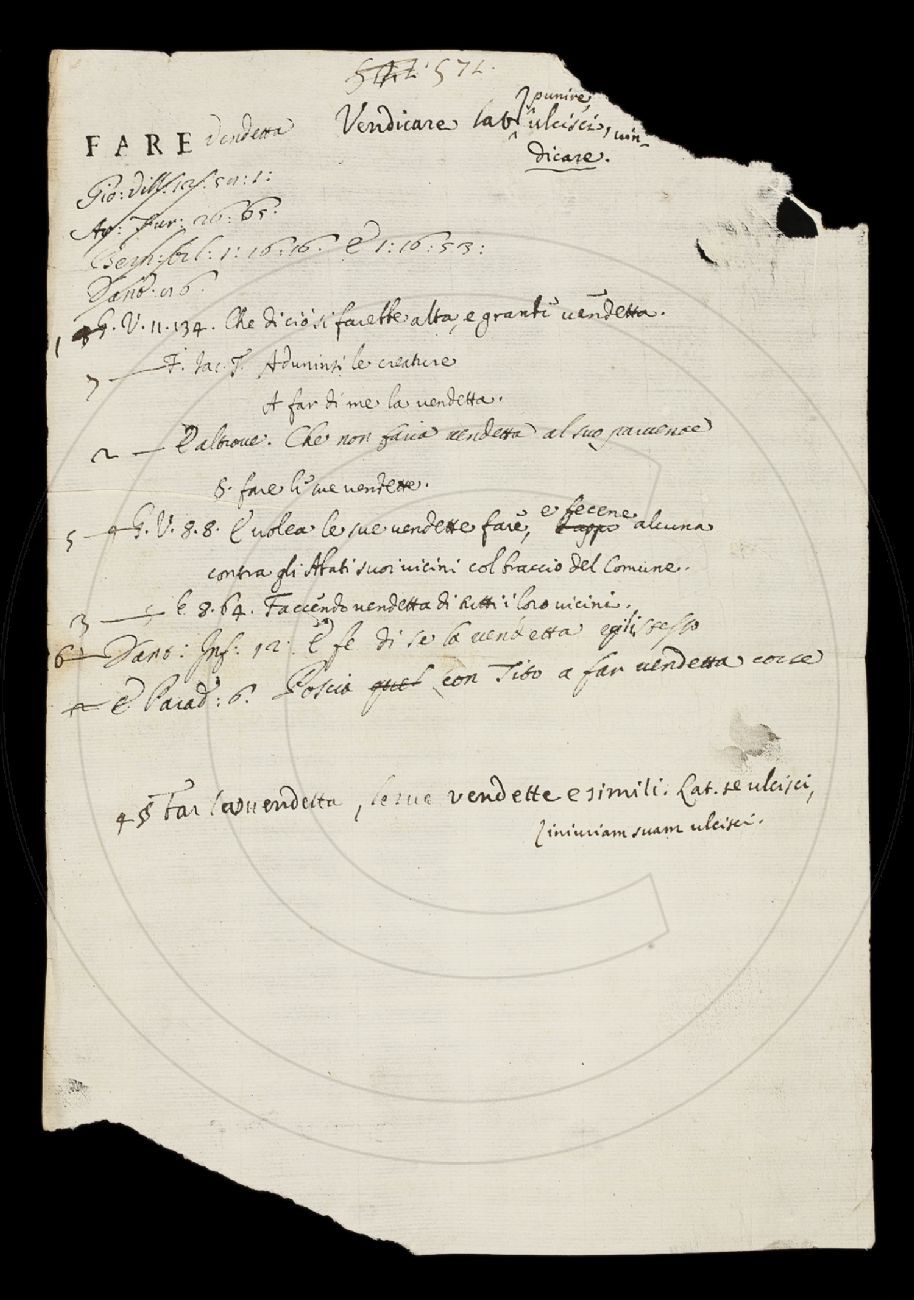 571: 572.
FARE Vendetta Vendicare lat. punire, ulcisci, vin-
dicare.
Gio: Vill: 12: 50: 1:
Ar: Fur: 26: 65:
Bern: Orl: 1: 16: 16. E 1: 16: 53:
Dant: 26.
1 G. V. 11. 134. Che di ciò si farebbe alta, e grande vendetta.
7 F. Iac. T. Aduninsi le creature
A far di me la vendetta.
2 E altrove. Che non facia vendetta al suo
§. fare le sue vendette.
5 G. V. 8. 8. E volea le sue vendette fare, e fecene alcuna
contra gli Abati suoi vicini col braccio del Comune.
3 E 8. 64. Faccendo vendetta di tutti i loro vicini.
6 Dant: Inf: 12: E fe di se la vendetta egli stesso
E Parad: 6. Poscia con Tito a far vendetta corse
4 § Far la vendetta, le sue vendette e simili. Lat. se ulcisci,
iniuriam suam ulcisci.